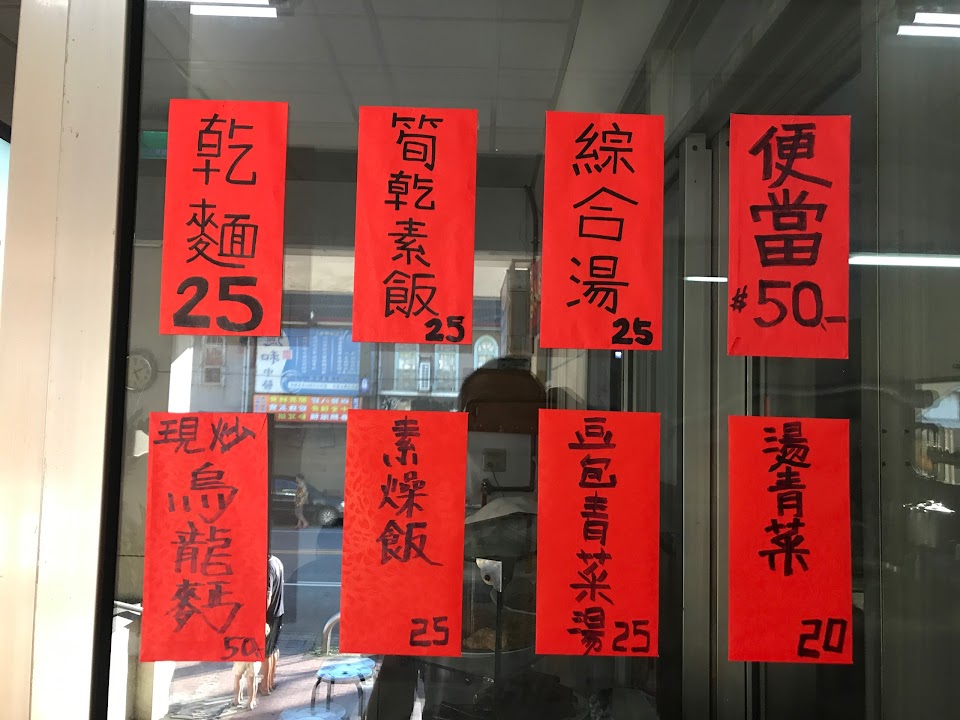 乾麵
25
筍乾素飯
25
綜合湯
25
便當
#50.-
現炒
烏龍麪
50.-
素燥飯
25
豆包青菜湯
25
燙青菜
20